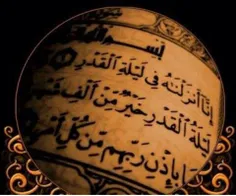 بِسْمِ
إِنَّا أَنزَلْنَهُ فِى لَيْلَةِ الْقَدْرِ
لَيْلَةُ الْقَدْرِ خَيْرٌ مِّنْ أَلْفِ
بِإِذْنِ رَبِّهِم مِّن كُلِّ أَمْرٍ